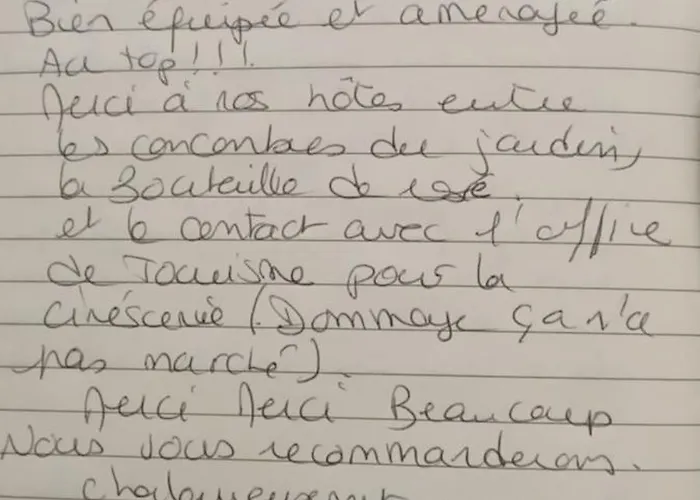 Bien équipée et aménagée.
Au top!!!
Merci à nos hôtes entre
les concombres du jardin,
la Bouteille de rosé.
et le contact avec l'office
de Tourisme pour la
cinéscenie (Dommage ça n'a
pas marché).
Merci Merci Beaucoup
Nous vous recommanderons.
chaleureusement